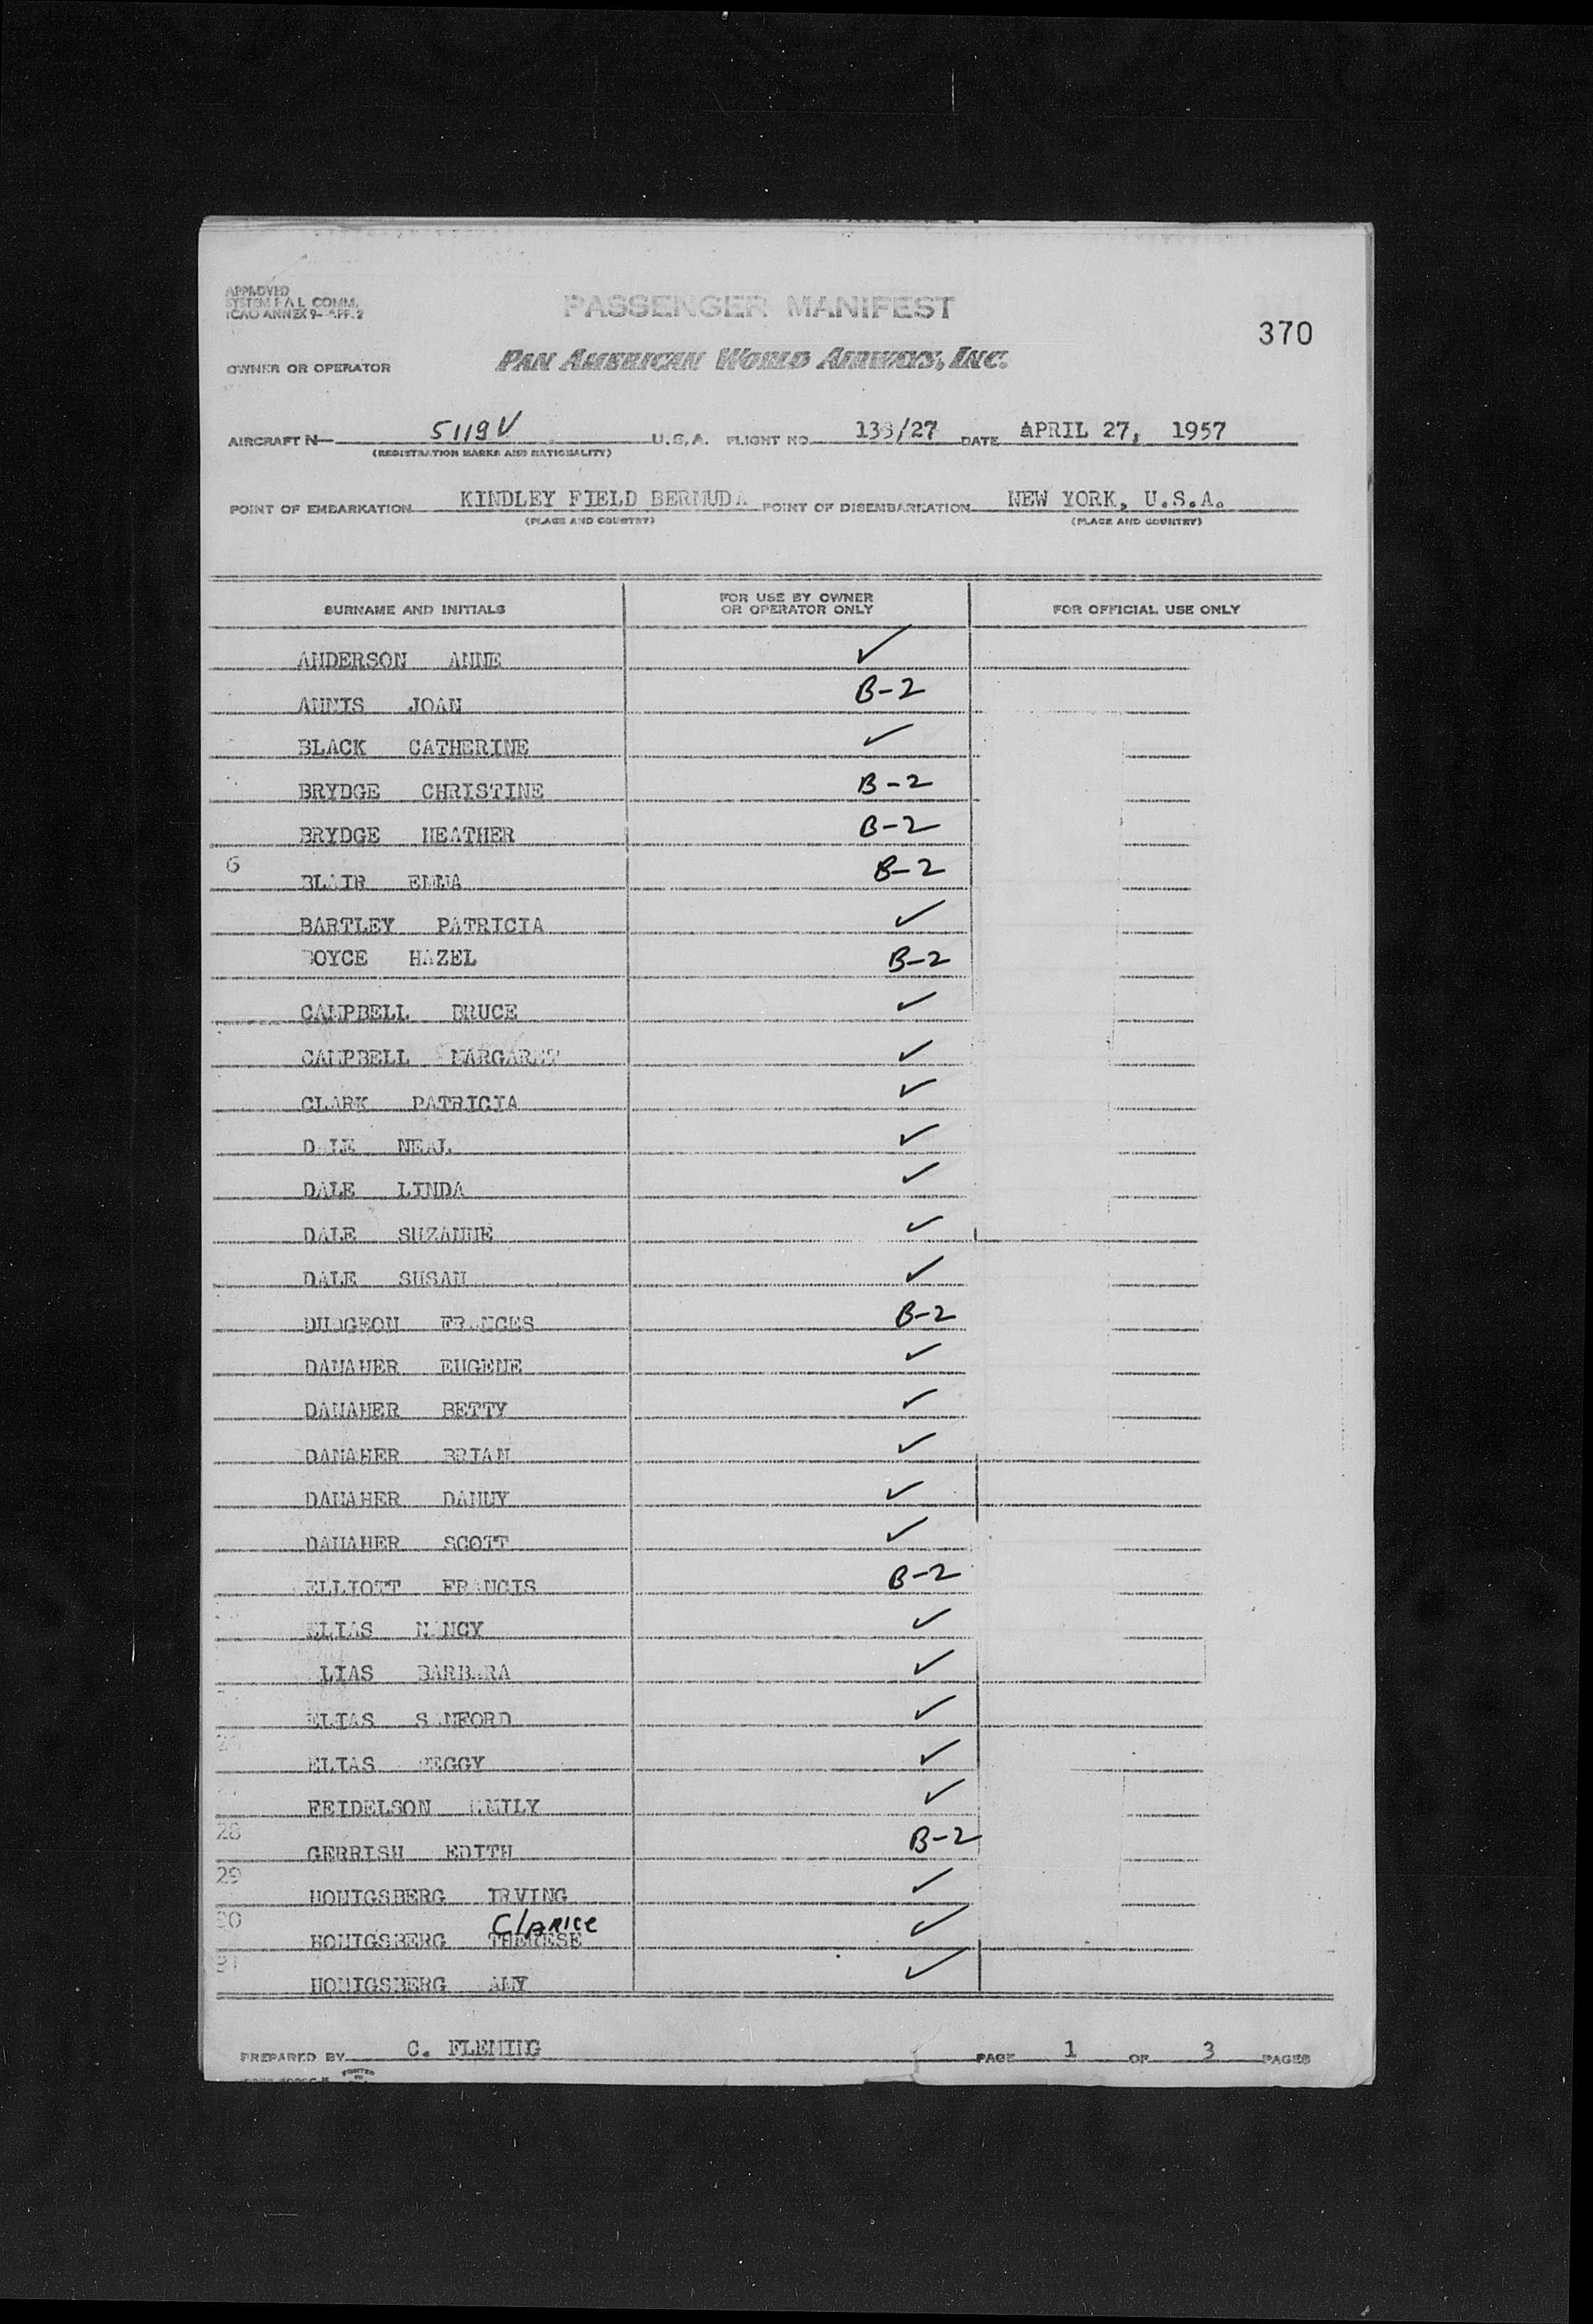 APPROVED
SYSTEM F A L COMM.
ICAO ANNEX 9- APP. 2
PASSENGER MANIFEST
370
OWNER OR OPERATOR PAN AMERICAN WORLD AIRWAYS, INC.
AIRCRAFT N 5119V U.S.A. FLIGHT NO. 138/27 DATE APRIL 27, 1957
(REGISTRATION MARKS AND NATIONALITY)
POINT OF EMBARKATION KINDLEY FIELD BERMUDA POINT OF DISEMBARKATION NEW YORK, U.S.A.
(PLACE AND COUNTRY) (PLACE AND COUNTRY)
SURNAME AND INITIALS FOR USE BY OWNER OR OPERATOR ONLY FOR OFFICIAL USE ONLY
ANDERSON ANNE ✓
ANNIS JOAN B-2
BLACK CATHERINE ✓
BRYDGE CHRISTINE B-2
BRYDGE HEATHER B-2
6 BLAIR EMMA B-2
BARTLEY PATRICIA ✓
BOYCE HAZEL B-2
CAMPBELL BRUCE ✓
CAMPBELL MARGARET ✓
CLARK PATRICIA ✓
DALE NEAL ✓
DALE LINDA ✓
DALE SUZANNE ✓
DALE SUSAN ✓
DUDGEON FRANCES B-2
DANAHER EUGENE ✓
DANAHER BETTY ✓
DANAHER BRIAN ✓
DANAHER DANNY ✓
DANAHER SCOTT ✓
ELLIOTT FRANCIS B-2
ELIAS NANCY ✓
ELIAS BARBARA ✓
ELIAS SANFORD ✓
ELIAS PEGGY ✓
FEIDELSON EMILY ✓
28 GERRISH EDITH B-2
29 HONIGSBERG IRVING ✓
30 HONIGSBERG THERESE Clarice ✓
31 HONIGSBERG AMY ✓
PREPARED BY C. FLEMING PAGE 1 OF 3 PAGES